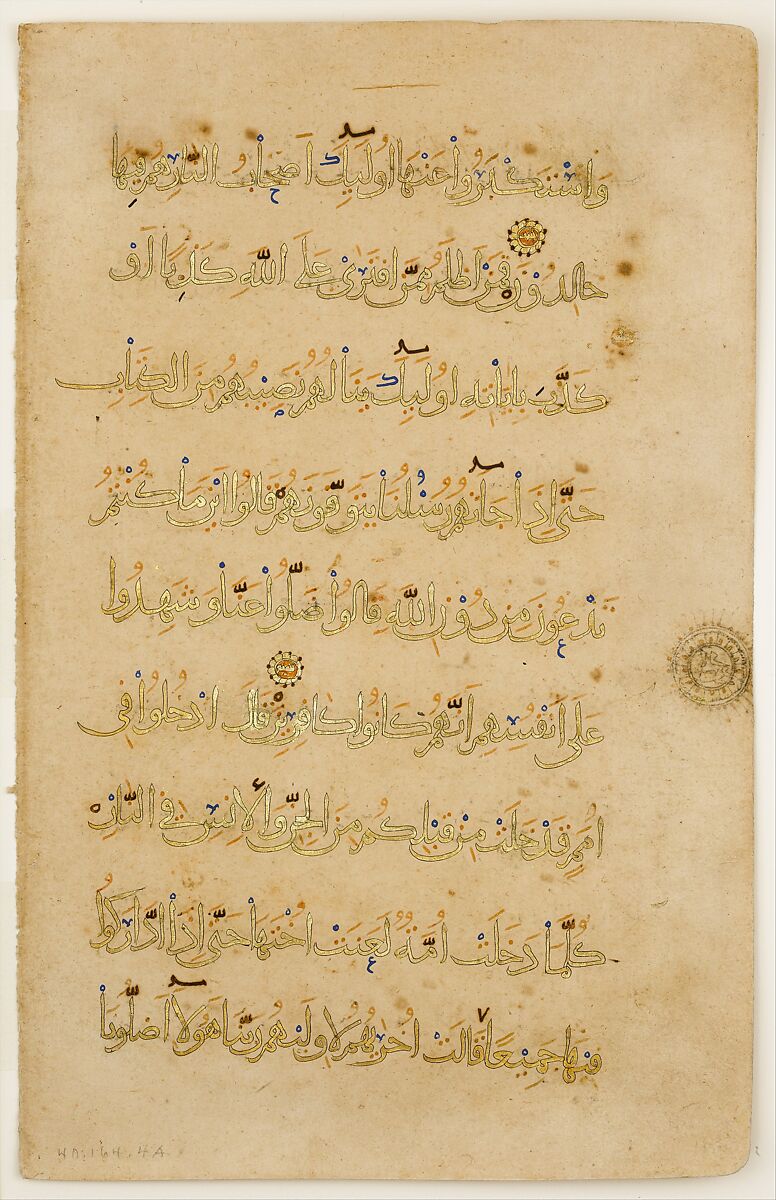 وَاسْتَكْبَرُوا عَنْهَا أُولَئِكَ أَصْحَابُ النَّارِ هُمْ فِيهَا
خَالِدُونَ فَمَنْ أَظْلَمُ مِمَّنِ افْتَرَى عَلَى اللَّهِ كَذِبًا أَوْ
كَذَّبَ بِآيَاتِهِ أُولَئِكَ يَنَالُهُمْ نَصِيبُهُمْ مِنَ الْكِتَابِ
حَتَّى إِذَا جَاءَتْهُمْ رُسُلُنَا يَتَوَفَّوْنَهُمْ قَالُوا أَيْنَ مَا كُنْتُمْ
تَدْعُونَ مِنْ دُونِ اللَّهِ قَالُوا ضَلُّوا عَنَّا وَشَهِدُوا
عَلَى أَنْفُسِهِمْ أَنَّهُمْ كَانُوا كَافِرِينَ قَالَ ادْخُلُوا فِي
أُمَمٍ قَدْ خَلَتْ مِنْ قَبْلِكُمْ مِنَ الْجِنِّ وَالْإِنْسِ فِي النَّارِ
كُلَّمَا دَخَلَتْ أُمَّةٌ لَعَنَتْ أُخْتَهَا حَتَّى إِذَا ادَّارَكُوا
فِيهَا جَمِيعًا قَالَتْ أُخْرَاهُمْ لِأُولَاهُمْ رَبَّنَا هَؤُلَاءِ أَضَلُّونَا
WD.164.4A